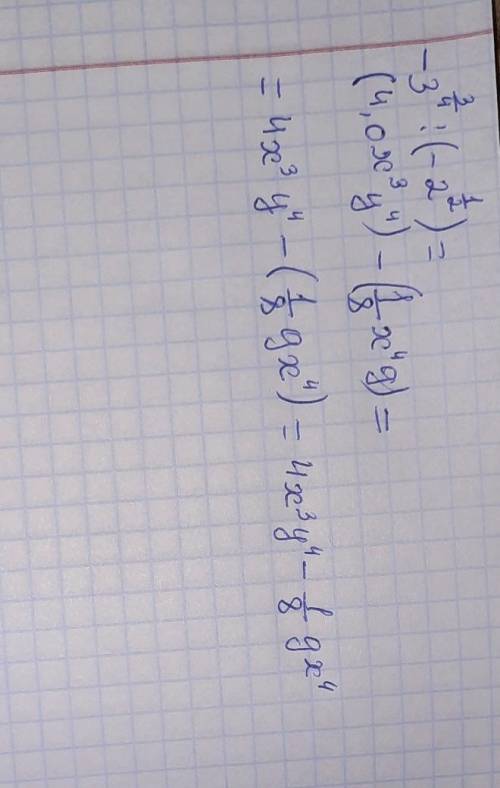 -3 3/4 : (-2 1/2) =
(4,0x³y⁴) - (1/8 x⁴g) =
= 4x³y⁴ - (1/8 gx⁴) = 4x³y⁴ - 1/8 gx⁴